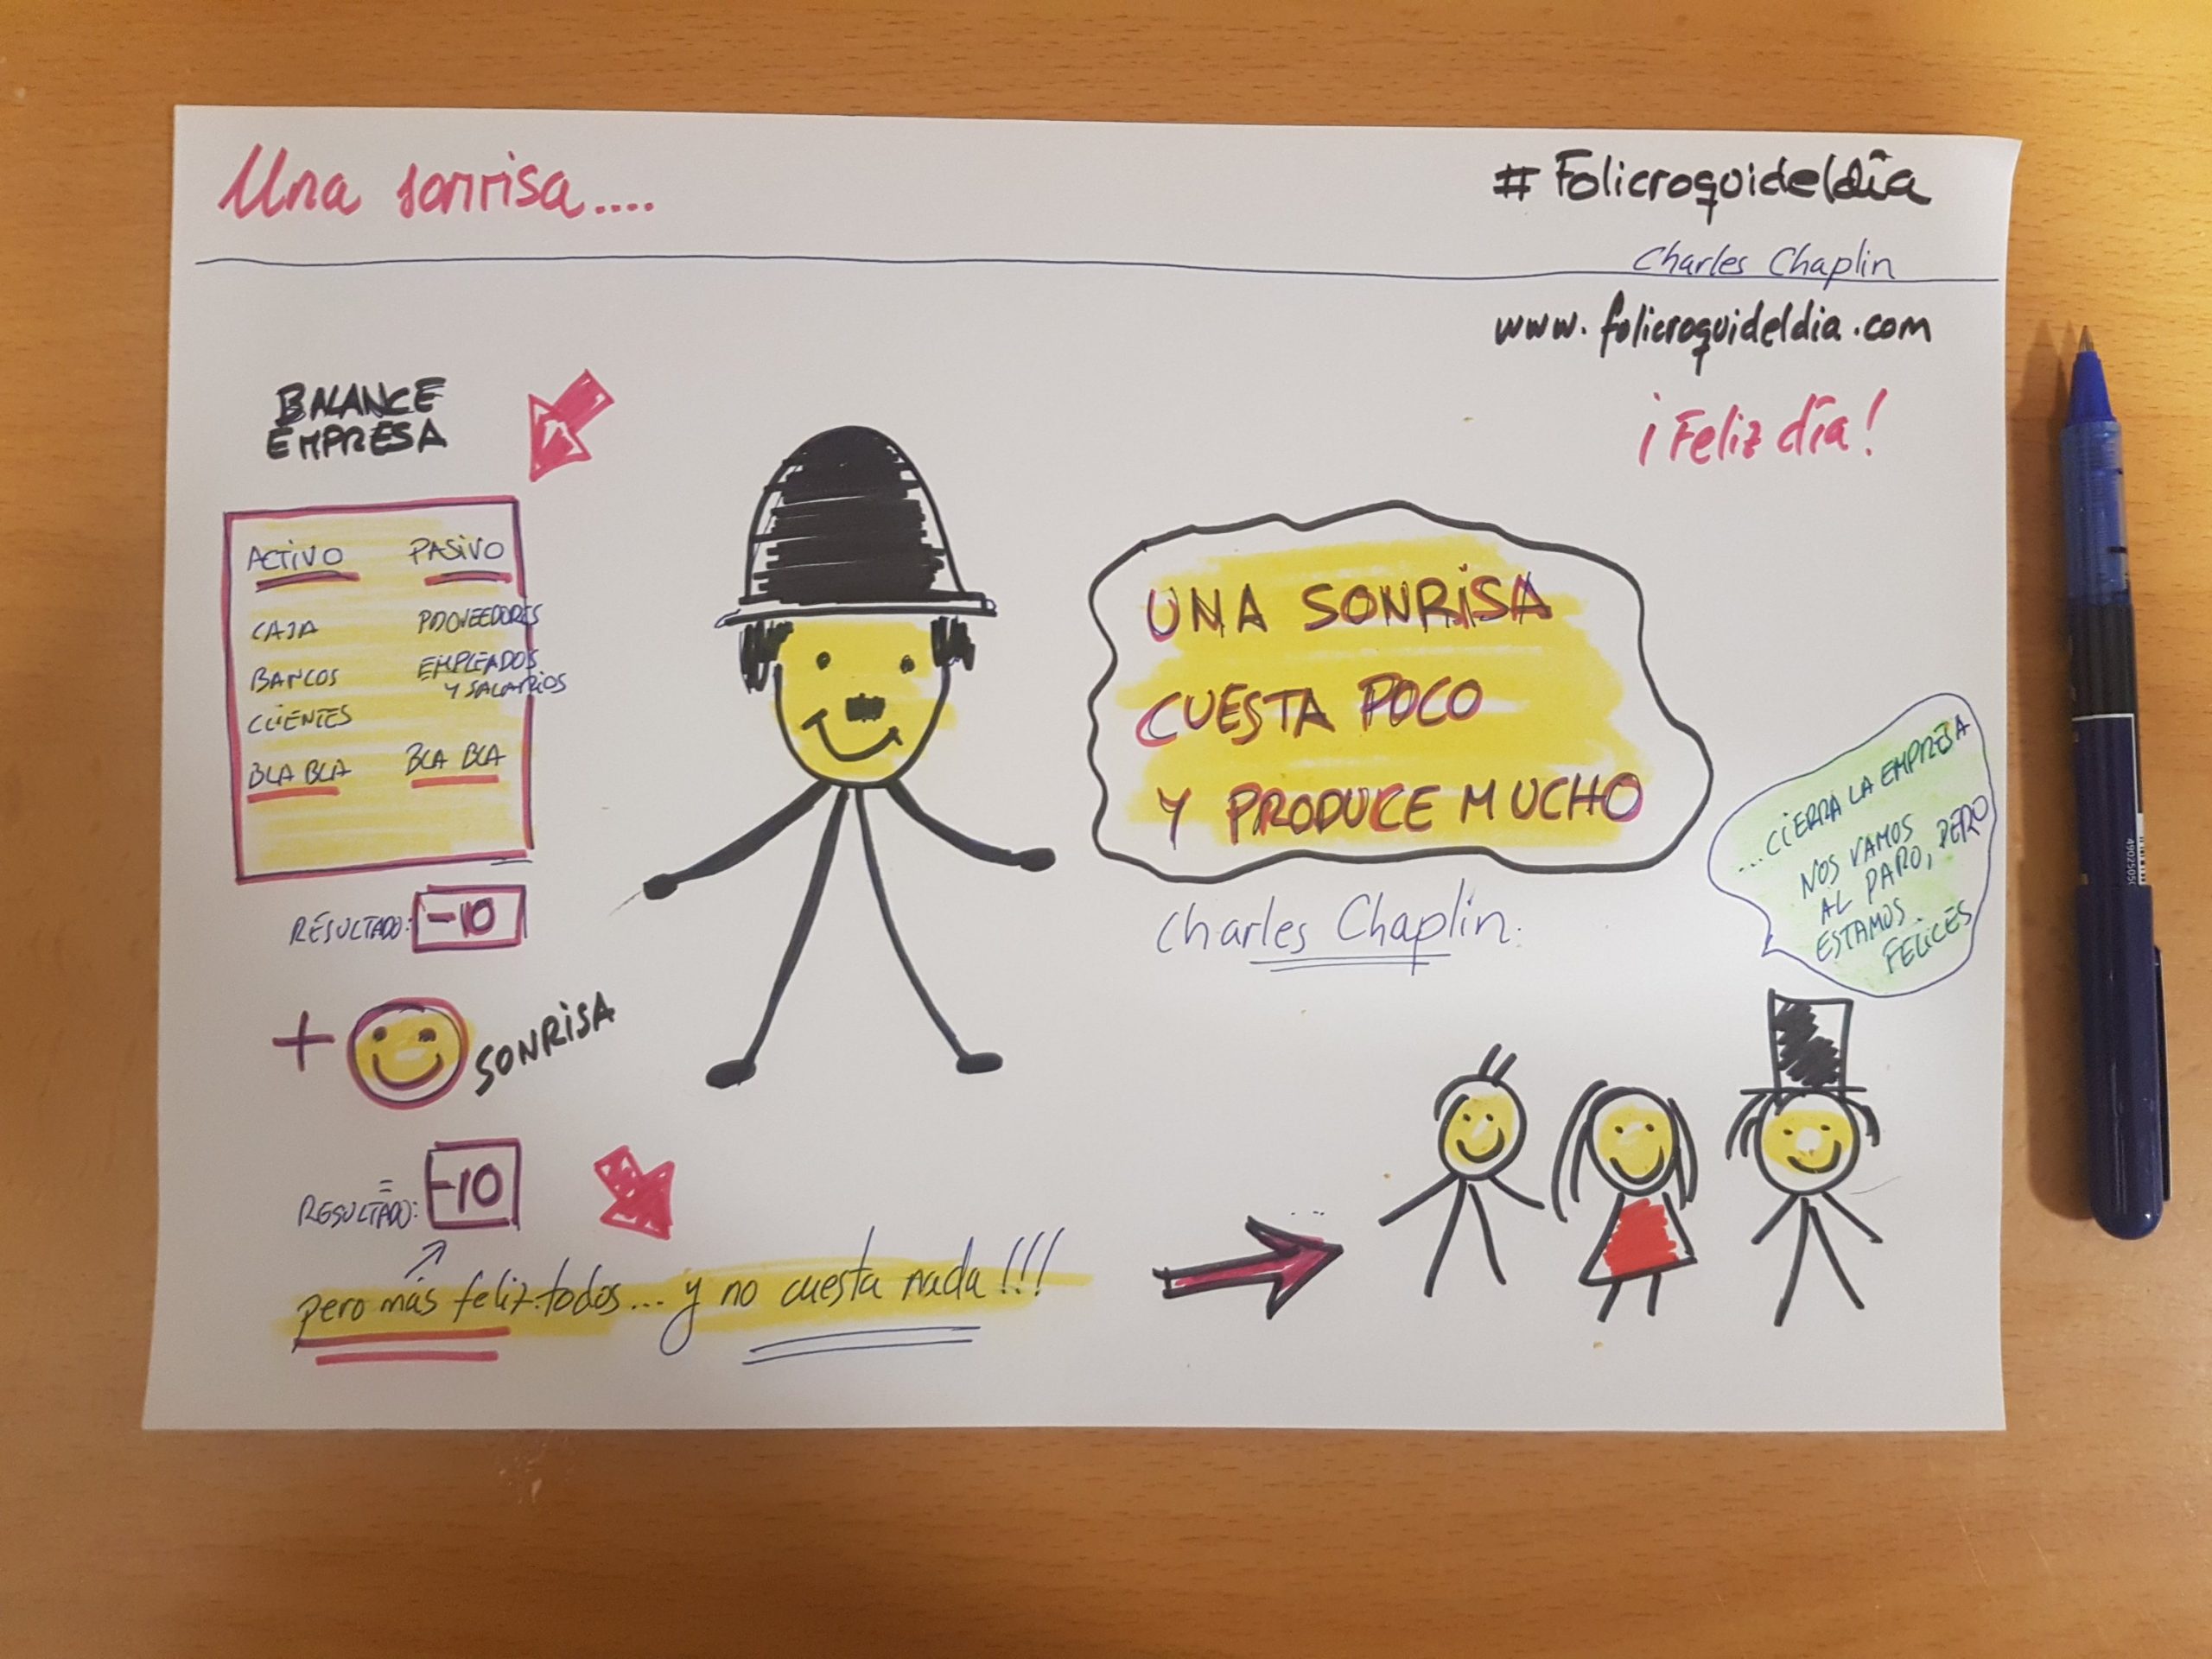 Una sonrisa....
#Folicroquideldía
Charles Chaplin
www.folicroquideldia.com
¡Feliz día!
BALANCE
EMPRESA
ACTIVO PASIVO
CAJA PROVEEDORES
BANCOS EMPLEADOS
Y SALARIOS
CLIENTES
BLA BLA BLA BLA
RESULTADO: -10
+ SONRISA
=
RESULTADO: -10
pero más feliz todos... y no cuesta nada!!!
UNA SONRISA
CUESTA POCO
Y PRODUCE MUCHO
Charles Chaplin.
...CIERRA LA EMPRESA
NOS VAMOS
AL PARO, PERO
ESTAMOS
FELICES